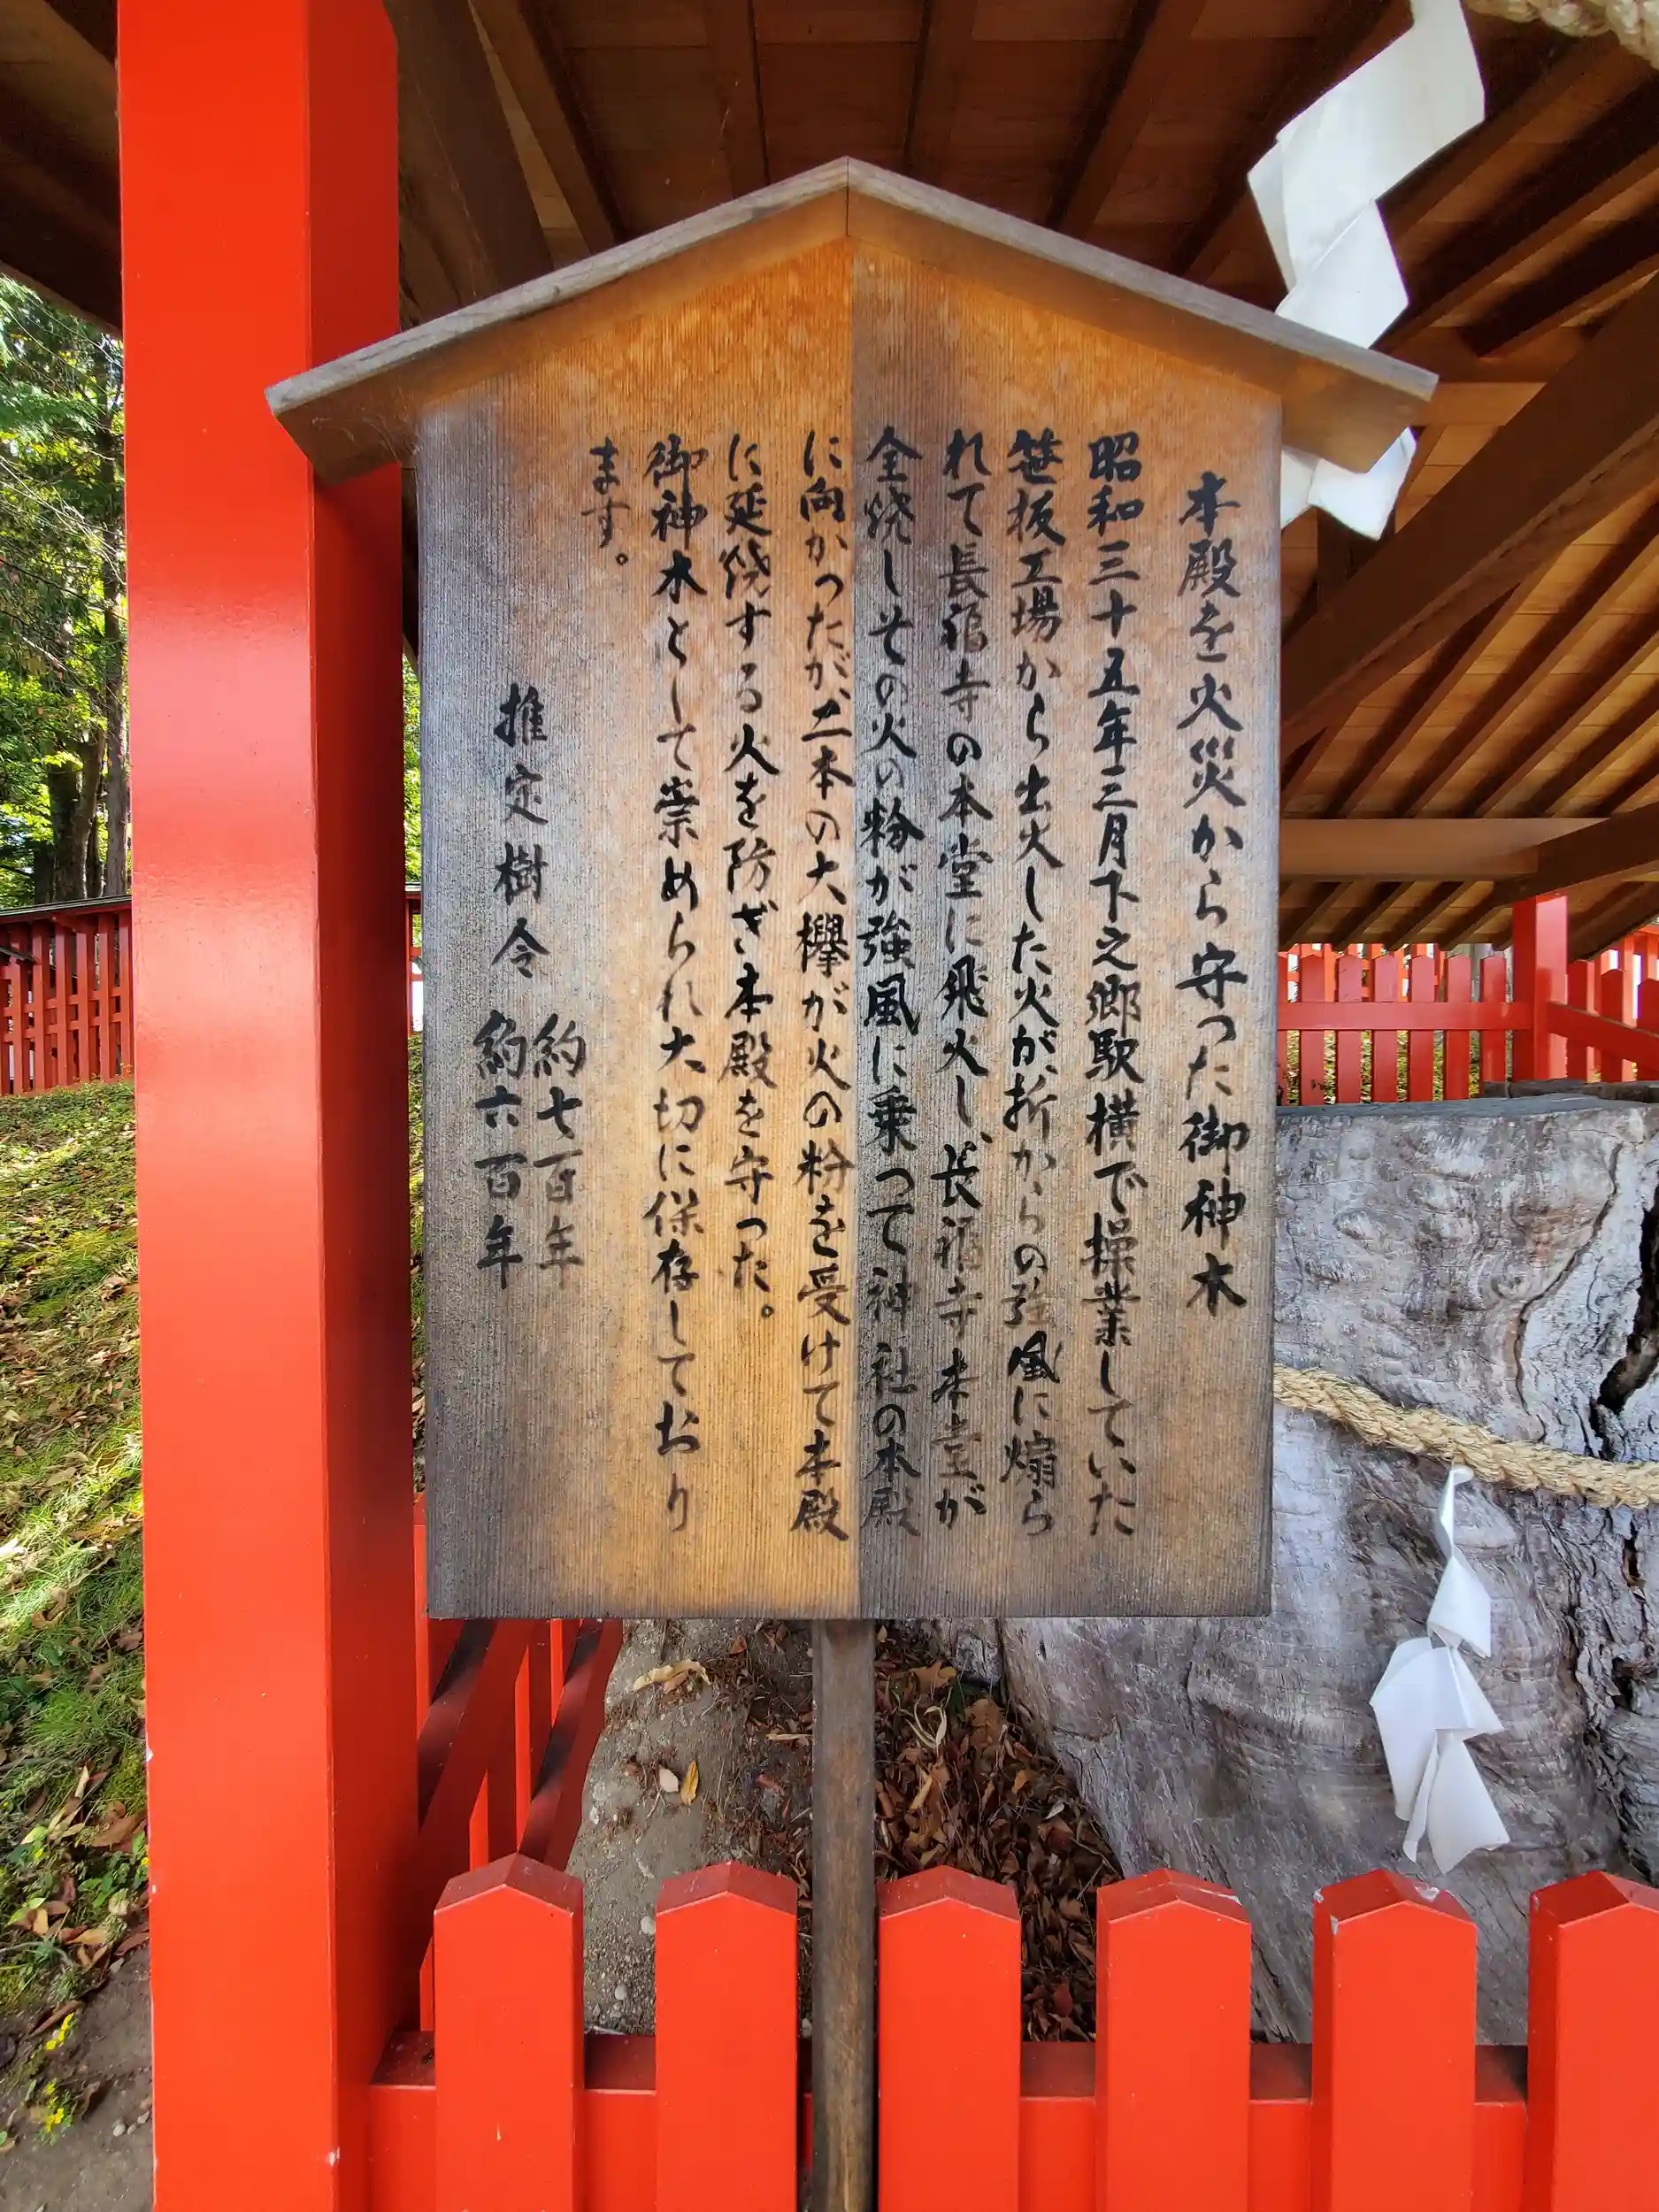 本殿を火災から守った御神木
昭和三十五年三月下之郷駅横で操業していた
笹板工場から出火した火が、折からの強風に煽ら
れて長福寺の本堂に飛火し、長福寺本堂が
全焼しその火の粉が強風に乗って神社の本殿
に向かったが、二本の大欅が火の粉を受けて本殿
に延焼する火を防ぎ本殿を守った。
御神木として崇められ大切に保存しており
ます。
推定樹令 約七百年
約六百年